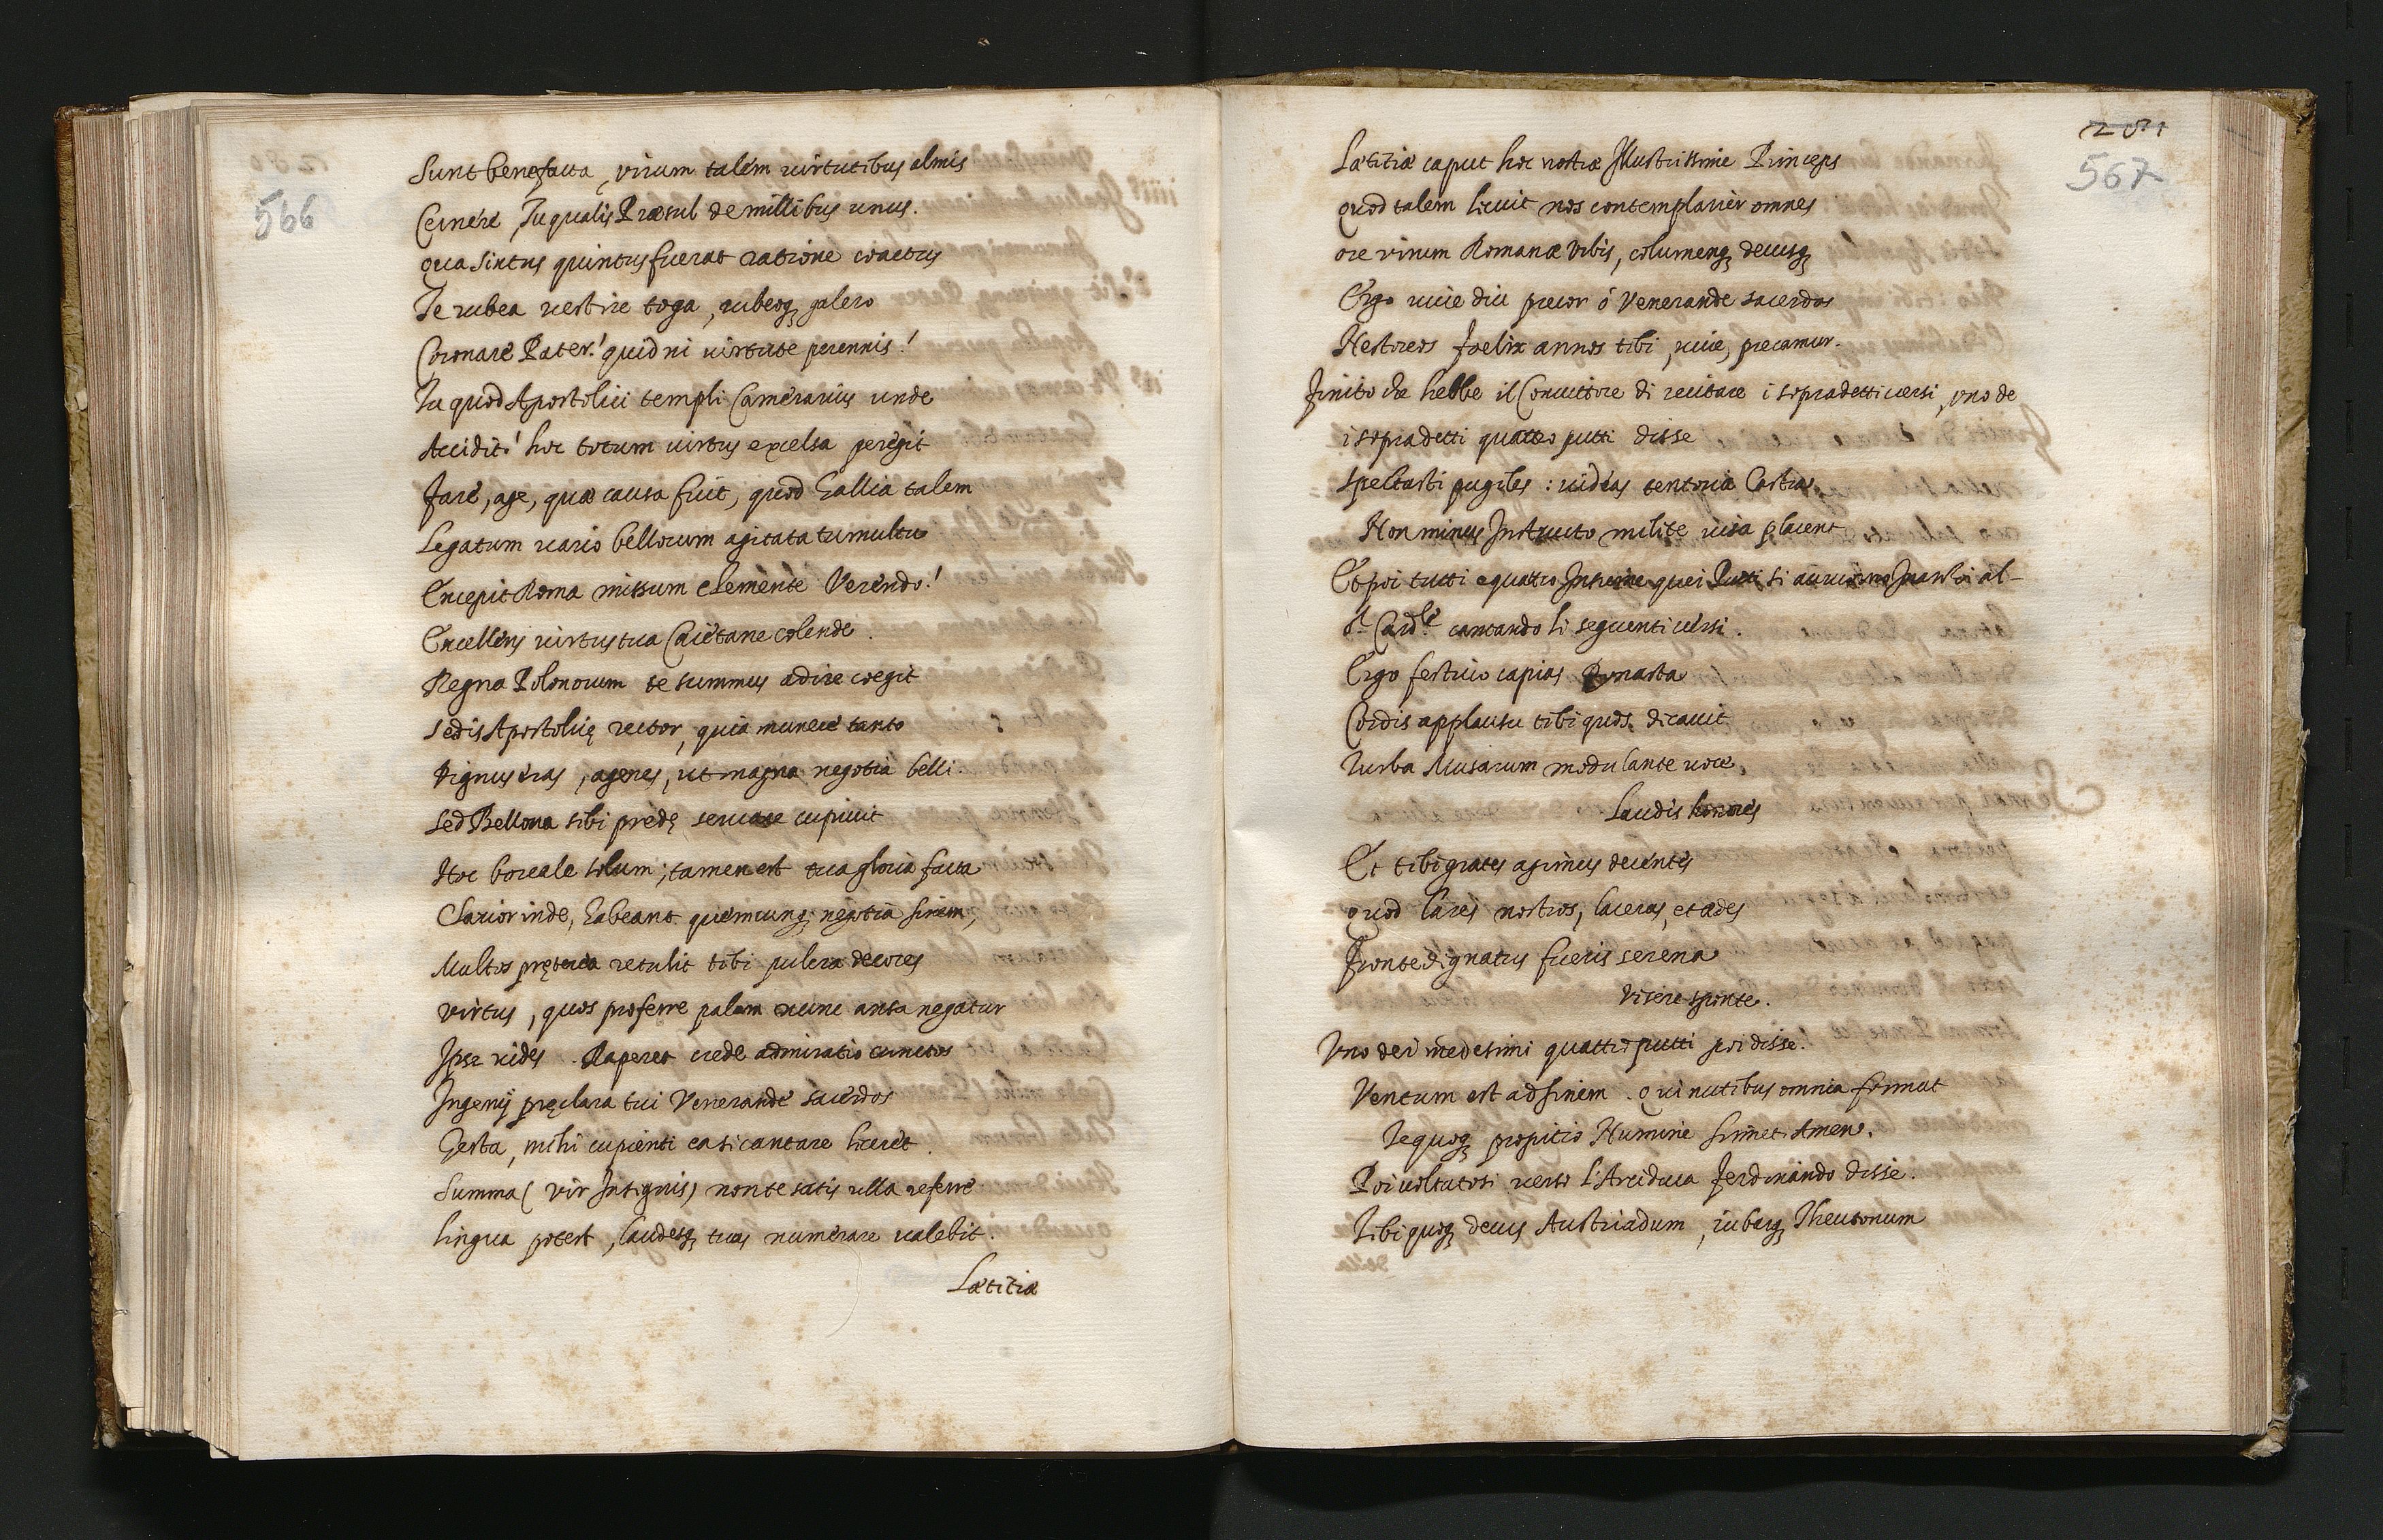 566
Sunt benefacta, virum talem uirtutibus almis
Cernere, Tu qualis Præsul de millibus unus.
qua Sixtus quintus fuerat ratione coactus
Te rubea uestire toga, rubeoq, galero
Coronare Pater! quid ni uirtute perennis!
Tu quod Apostolici templi Camerarius unde
Accidit! hoc totum uirtus excelsa peregit
Fare, age, quæ causa fuit, quod Gallia talem
Legatum uario bellorum agitata tumultu
Excepit Roma missum clemente Verendo!
Excellens uirtus tua Caietane colende.
Regna Polonorum te summus adire coegit
Sedis Apostolicę rector, quia munere tanto
Dignus eras, ageres, ut magna negotia belli.
Sed Bellona sibi predę seruare cupiuit
Hoc boreale solum; tamen est tua gloria facta
Clarior inde, habeant quemcunq; negotia finem,
Multos pręterea retulit tibi pulcra decores
virtus, quos proferre palam nunc ansa negatur
Ipse uides. Raperet crede admiratio cunctos
Ingenij pręclara tui Venerande sacerdos
Gesta, mihi cupienti ea si cantare liceret.
Summa (vir Insignis) non te satis ulla referre
lingua potest, laudesq, tuas numerare ualebit.
Lætitiæ
281
567
Lætitiæ caput hoc nostræ Illustrissime Princeps
quod talem licuit nos contemplarier omnes
ore virum Romanæ Vrbis, columenq, decusq,
Ergo uiue diu precor ô Venerande sacerdos
Nestoreos foelix annos tibi, uiue, precamur.
Finito che hebbe il Conuittore di recitare i sopradetti uersi, vno de
i sopradetti quattro putti disse
Spectasti pugiles: uideas tentoria Castra
Non minus Instructo milite uisa placent
Et poi tutti e quatro Insieme quei Putti si auuiorno Inanzi al-
Sr Cardle cantando li seguenti uersi.
Ergo festiuo capias Dynasta
Cordis applausu tibi quos dicauit
Turba Musarum modulante uoce,
Laudis honores
Et tibi grates agimus decentes
quod lares nostros, laceras, et ædes
fronte dignatus fueris serena
Visere sponte.
Vno dei medesimi quattro putti poi disse.
Ventum est ad finem. qui nutibus omnia firmat
Te quoq, propitio Numine firmet Amen.
Poi uoltatosi uerso l'Arciduca Ferdinando disse.
Tibi quoq, decus Austriadum, iubarq, Theutonum